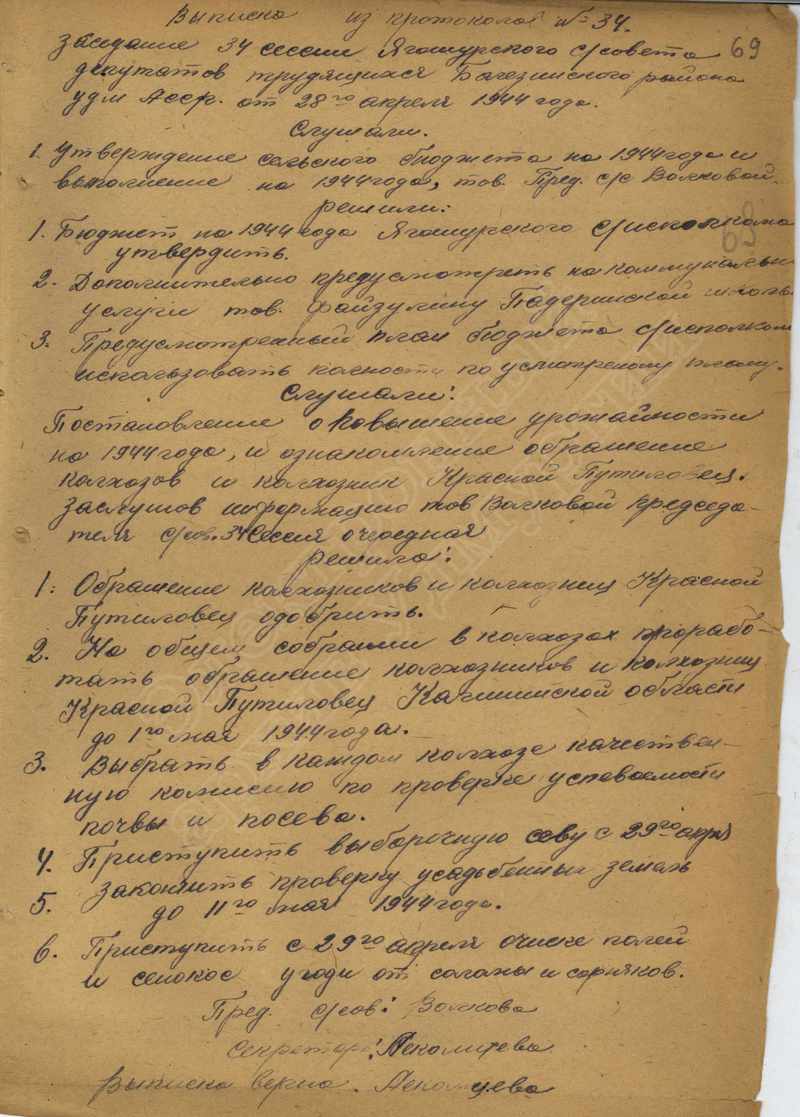 Выписка из протокола № 34.
69
Заседание 34 сессии Ягошурского с/совета
депутатов трудящихся Балезинского района
удм Асср. от 28го апреля 1944 года.
Слушали.
1. Утверждение сельского бюджета на 1944 года и
выполнение на 1944 года, тов. Пред. с/с Волковой.
решили:
1. Бюджет на 1944 года Ягошурского с/исполкома
утвердить.
69
2. Дополнительно предусмотреть на коммунальн
услуги тов. Файзулину Падеринской школы
3. Предусмотренный план бюджета с/исполком
использовать полность по усмотреному плану.
Слушали:
Постановление о повышение урожайности
на 1944 года, и ознакомление обращение
колхозов и колхозниц Красной Путиловец.
Заслушов информацию тов Волковой председа-
теля с/сов. 34 Сессия очередная
решила:
1: Обращение колхозников и колхозниц Красной
Путиловец одобрить.
2. На общем собрании в колхозах прорабо-
тать обращение колхозников и колхозниц
Красной Путиловец области
до 1го мая 1944 года.
3. Выбрать в каждом колхозе качествен-
ную комисию по проверке успеваемости
почвы и посева.
4. Приступить выборочную севу с 29го апр
5. закончить проверку усадьбенных земель
до 11го мая 1944 года.
6. Приступить с 29го апреля очиске полей
и сенокос угоди от соломы и сорняков.
Пред. с/сов: Волкова
Секретарь: Лекомцева
Выписка верна. Лекомцева